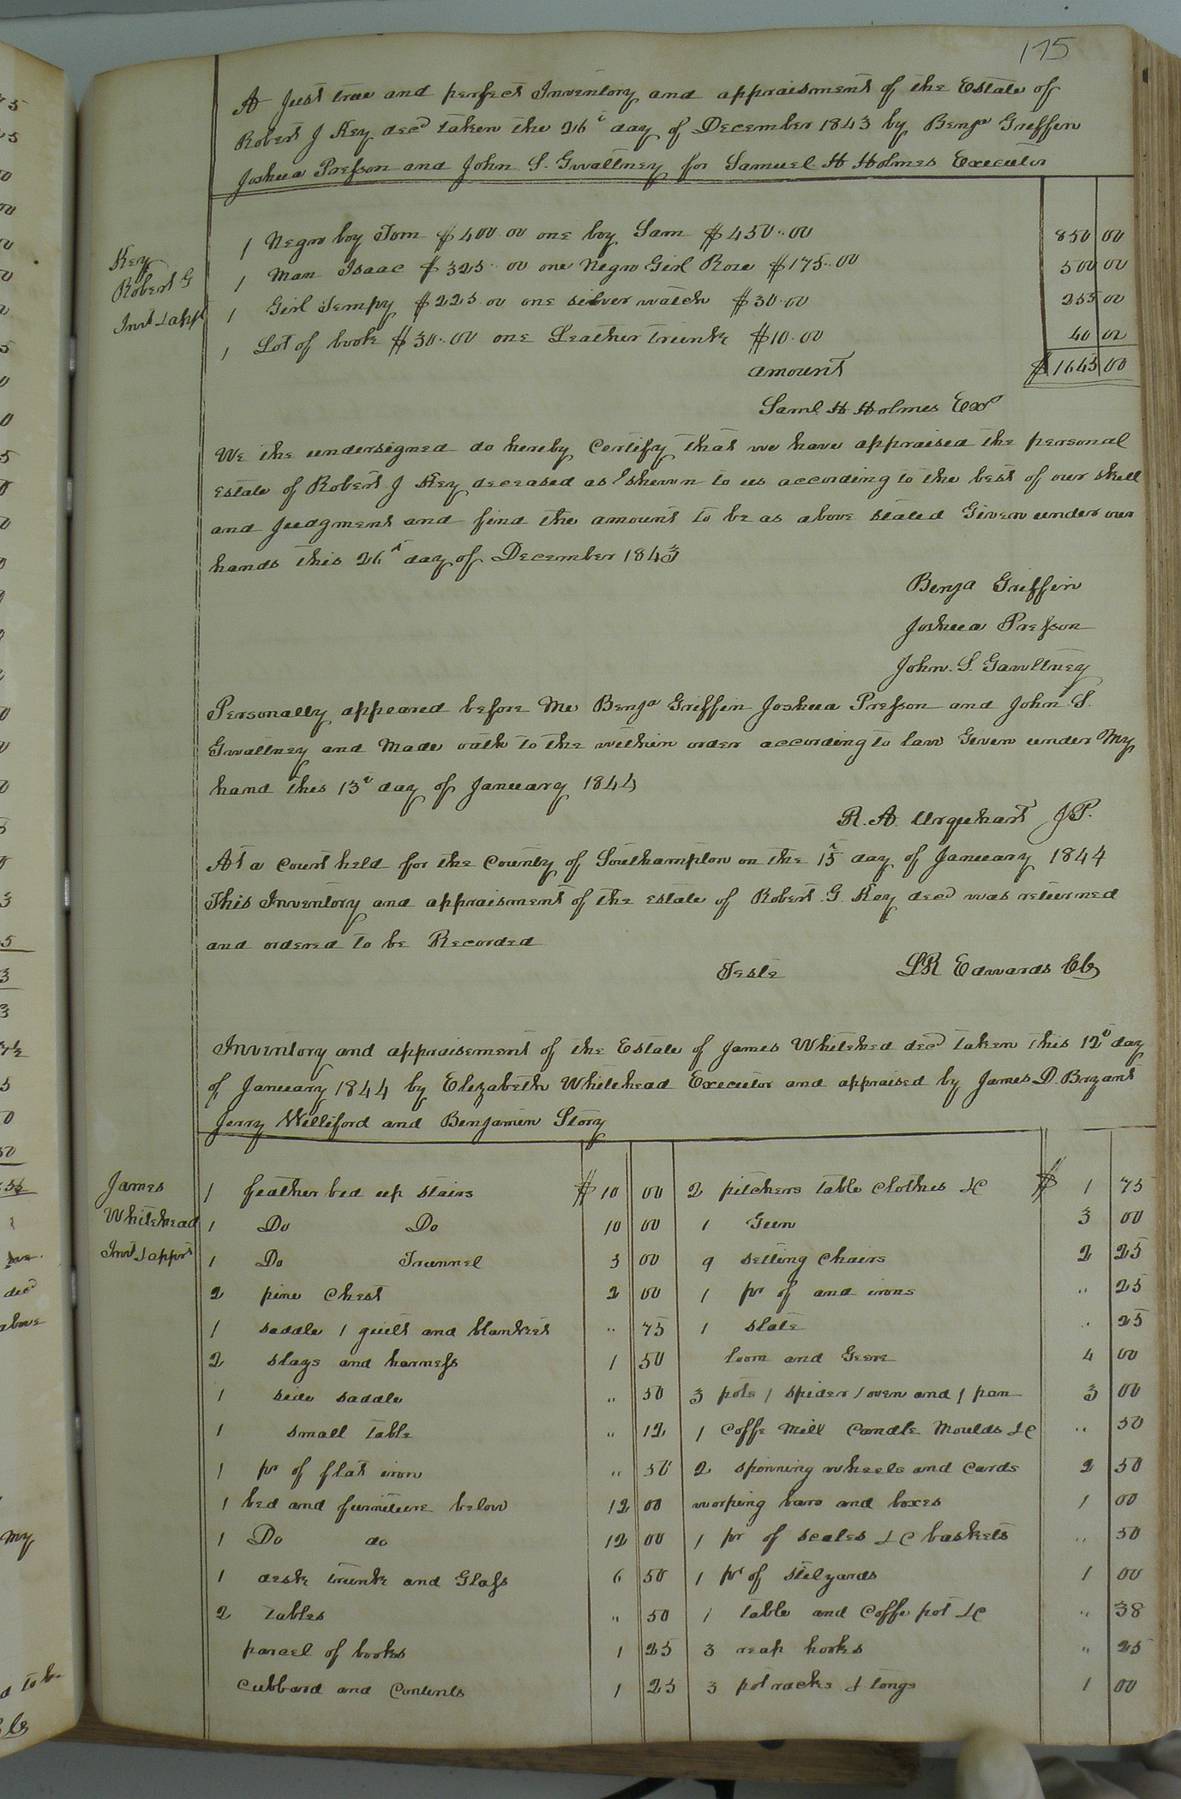 175
A Just true and perfect Inventory and appraisment of the Estate of
Robert J Key decd taken the 26t day of December 1843 by Benja Griffin
Joshua Presson and John S. Gwaltney for Samuel H Holmes Executor
Key
Robert G
Invt & appt
1 Negro boy Tom $400 00 one boy Sam $450..00 850 00
1 Man Isaac $325..00 one Negro Girl Rose $175..00 500 00
1 Girl Tempy $225.00 one silver watch $30.00 255 00
1 Lot of books $30..00 one Leather trunk $10.00 40 00
amount $1645 00
Saml H Holmes Exor
We the undersigned do hereby Certify that we have appraised the personal
Estate of Robert J Key deceased as shewn to us according to the best of our skill
and Judgment and find the amount to be as above stated Given under our
hands this 26th day of December 1843
Benja Griffin
Joshua Presson
John. S. Gawltney
Personally appeared before Me Benja Griffin Joshua Presson and John S.
Gwaltney and Made oath to the within order according to law Given under My
hand this 13t day of January 1844
R. A. Urquhart J.P.
At a Court held for the County of Southampton on the 15th day of January 1844
This Inventory and appraisment of the Estate of Robert G. Key decd was returned
and ordered to be Recorded
Teste LR Edwards Clk
Inventory and appraisement of the Estate of James Whitehed decd taken this 12t day
of January 1844 by Elizabeth Whitehead Executor and appraised by James D. Bryant
Jerry Williford and Benjamin Story
James
Whitehead
Invt & apprt
1 feather bed up stairs $10 00 2 pitchers table Clothes &C $1 75
1 Do Do 10 00 1 Gun 3 00
1 Do Trunnel 3 00 9 setting Chairs 2 25
2 pine Chest 2 00 1 pr of and irons .. 25
1 saddle 1 quilt and blankets .. 75 1 slate .. 25
2 slays and harness 1 50 loom and Geere 4 00
1 side saddle .. 50 3 pots 1 spider 1 oven and 1 pan 3 00
1 small table .. 12 1 Coffe Mill Candle Moulds &C .. 50
1 pr of flat iron .. 50 2 spinning wheels and Cards 2 50
1 bed and furniture below 12 00 warping bars and boxes 1 00
1 Do do 12 00 1 pr of scales &C baskets .. 50
1 desk trunk and Glass 6 50 1 pr of stilyards 1 00
2 tables .. 50 1 table and Coffe pot &C .. 38
parcel of books 1 25 3 reap hooks .. 25
Cubbard and Contents 1 25 3 pot racks & tongs 1 00